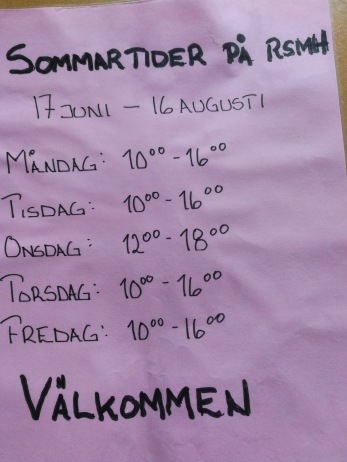 SOMMARTIDER PÅ RSMH
17 JUNI - 16 AUGUSTI
MÅNDAG: 10⁰⁰ - 16⁰⁰
TISDAG: 10⁰⁰ - 16⁰⁰
ONSDAG: 12⁰⁰ - 18⁰⁰
TORSDAG: 10⁰⁰ - 16⁰⁰
FREDAG: 10⁰⁰ - 16⁰⁰
VÄLKOMMEN